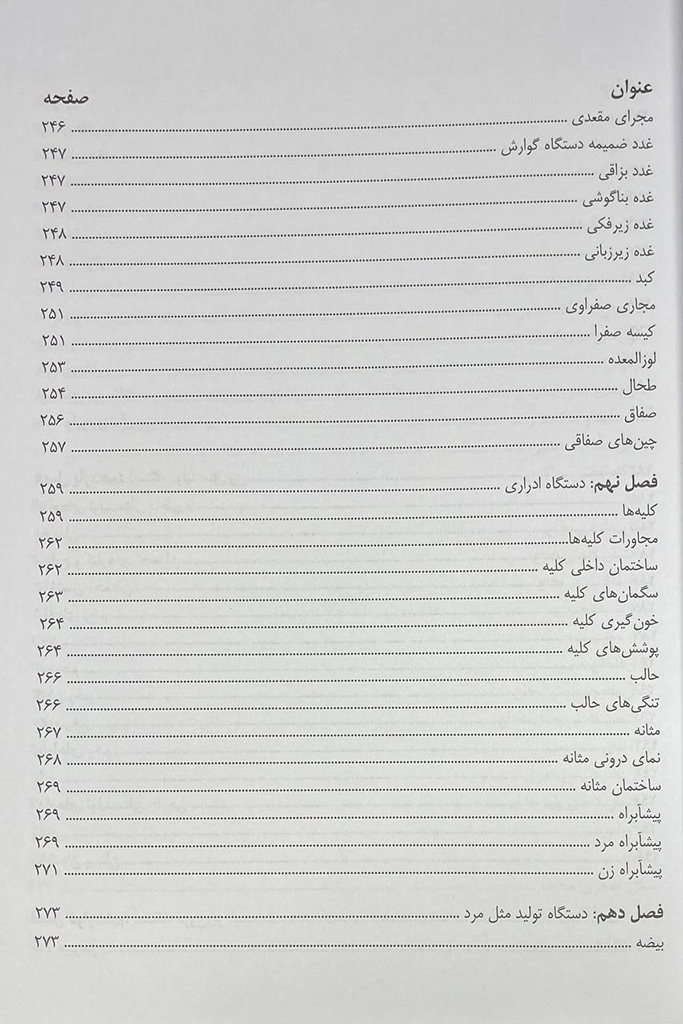 عنوان صفحه
مجرای مقعدی ۲۴۶
غدد ضمیمه دستگاه گوارش ۲۴۷
غدد بزاقی ۲۴۷
غده بناگوشی ۲۴۷
غده زیرفکی ۲۴۸
غده زیرزبانی ۲۴۸
کبد ۲۴۹
مجاری صفراوی ۲۵۱
کیسه صفرا ۲۵۱
لوزالمعده ۲۵۳
طحال ۲۵۴
صفاق ۲۵۶
چین‌های صفاقی ۲۵۷
فصل نهم: دستگاه ادراری ۲۵۹
کلیه‌ها ۲۵۹
مجاورات کلیه‌ها ۲۶۲
ساختمان داخلی کلیه ۲۶۲
سگمان‌های کلیه ۲۶۳
خون‌گیری کلیه ۲۶۴
پوشش‌های کلیه ۲۶۴
حالب ۲۶۶
تنگی‌های حالب ۲۶۶
مثانه ۲۶۷
نمای درونی مثانه ۲۶۸
ساختمان مثانه ۲۶۹
پیشآبراه ۲۶۹
پیشآبراه مرد ۲۶۹
پیشآبراه زن ۲۷۱
فصل دهم: دستگاه تولید مثل مرد ۲۷۳
بیضه ۲۷۳